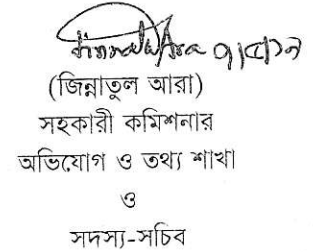 (জিন্নাতুল আরা)
সহকারী কমিশনার
অভিযোগ ও তথ্য শাখা
ও
সদস্য-সচিব